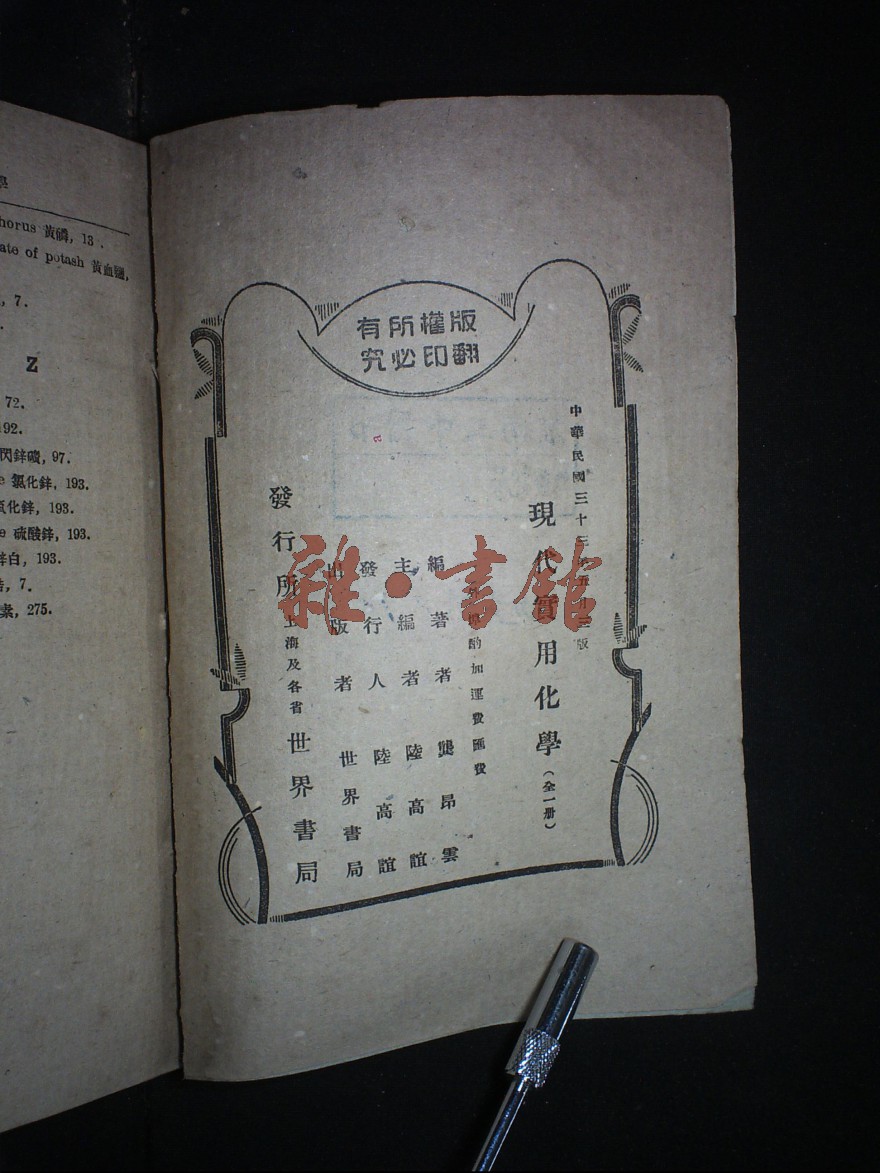 horus 黃磷, 13.
ate of potash 黃血鹽,
, 7.
Z
72.
192.
閃鋅礦, 97.
e 氯化鋅, 193.
氧化鋅, 193.
e 硫酸鋅, 193.
鋅白, 193.
, 7.
素, 275.
版權所有
翻印必究
中華民國三十三年五月版
現代實用化學(全一册)
酌加運費匯費
編著者 龔昂雲
主編者 陸高誼
發行人 陸高誼
出版者 世界書局
發行所 上海及各省 世界書局
雜·書館